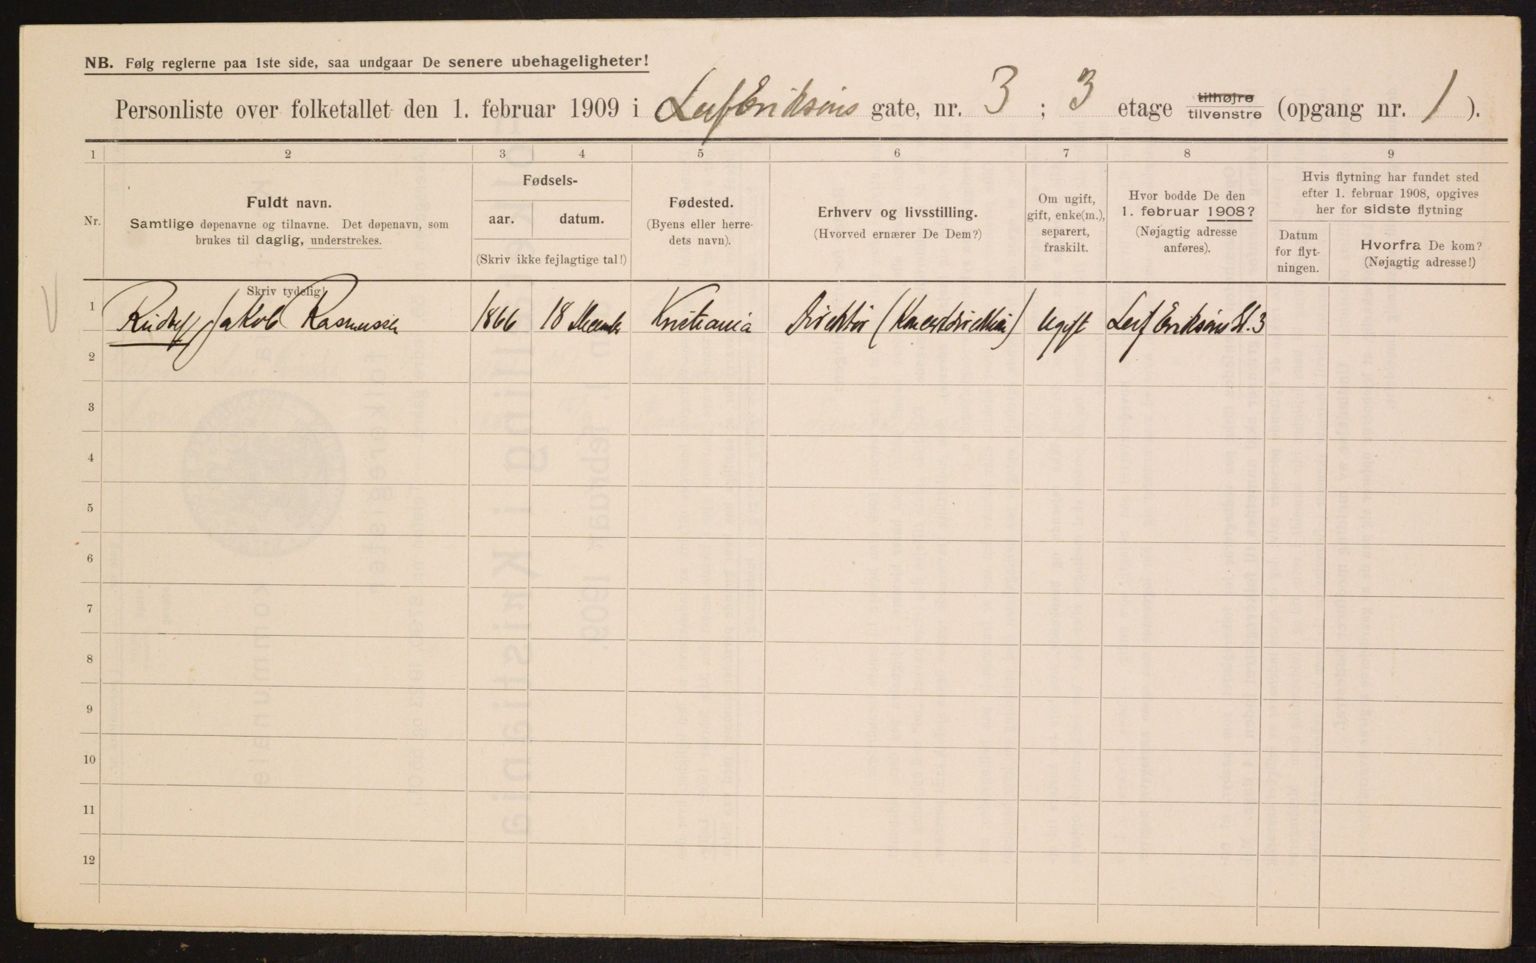 NB. Følg reglerne paa 1ste side, saa undgaar De senere ubehageligheter!
Personliste over folketallet den 1. februar 1909 i Leif Eriksøns gate, nr. 3 ; 3 etage tilhøjre tilvenstre (opgang nr. 1 ).
1 2 3 4 5 6 7 8 9
Nr.
Fuldt navn.
Samtlige døpenavne og tilnavne. Det døpenavn, som
brukes til daglig, understrekes.
Skriv tydelig!
Fødsels-
aar. datum.
(Skriv ikke fejlagtige tal!)
Fødested.
(Byens eller herre-
dets navn).
Erhverv og livsstilling.
(Hvorved ernærer De Dem?)
Om ugift,
gift, enke(m.),
separert,
fraskilt.
Hvor bodde De den
1. februar 1908?
(Nøjagtig adresse
anføres).
Hvis flytning har fundet sted
efter 1. februar 1908, opgives
her for sidste flytning
Datum
for flyt-
ningen.
Hvorfra De kom?
(Nøjagtig adresse!)
1 Rudolf Jakob Rasmussen 1866 18 Kristiania Direktør ugift Leif Eriksøns Gt. 3
2
3
4
5
6
7
8
9
10
11
12